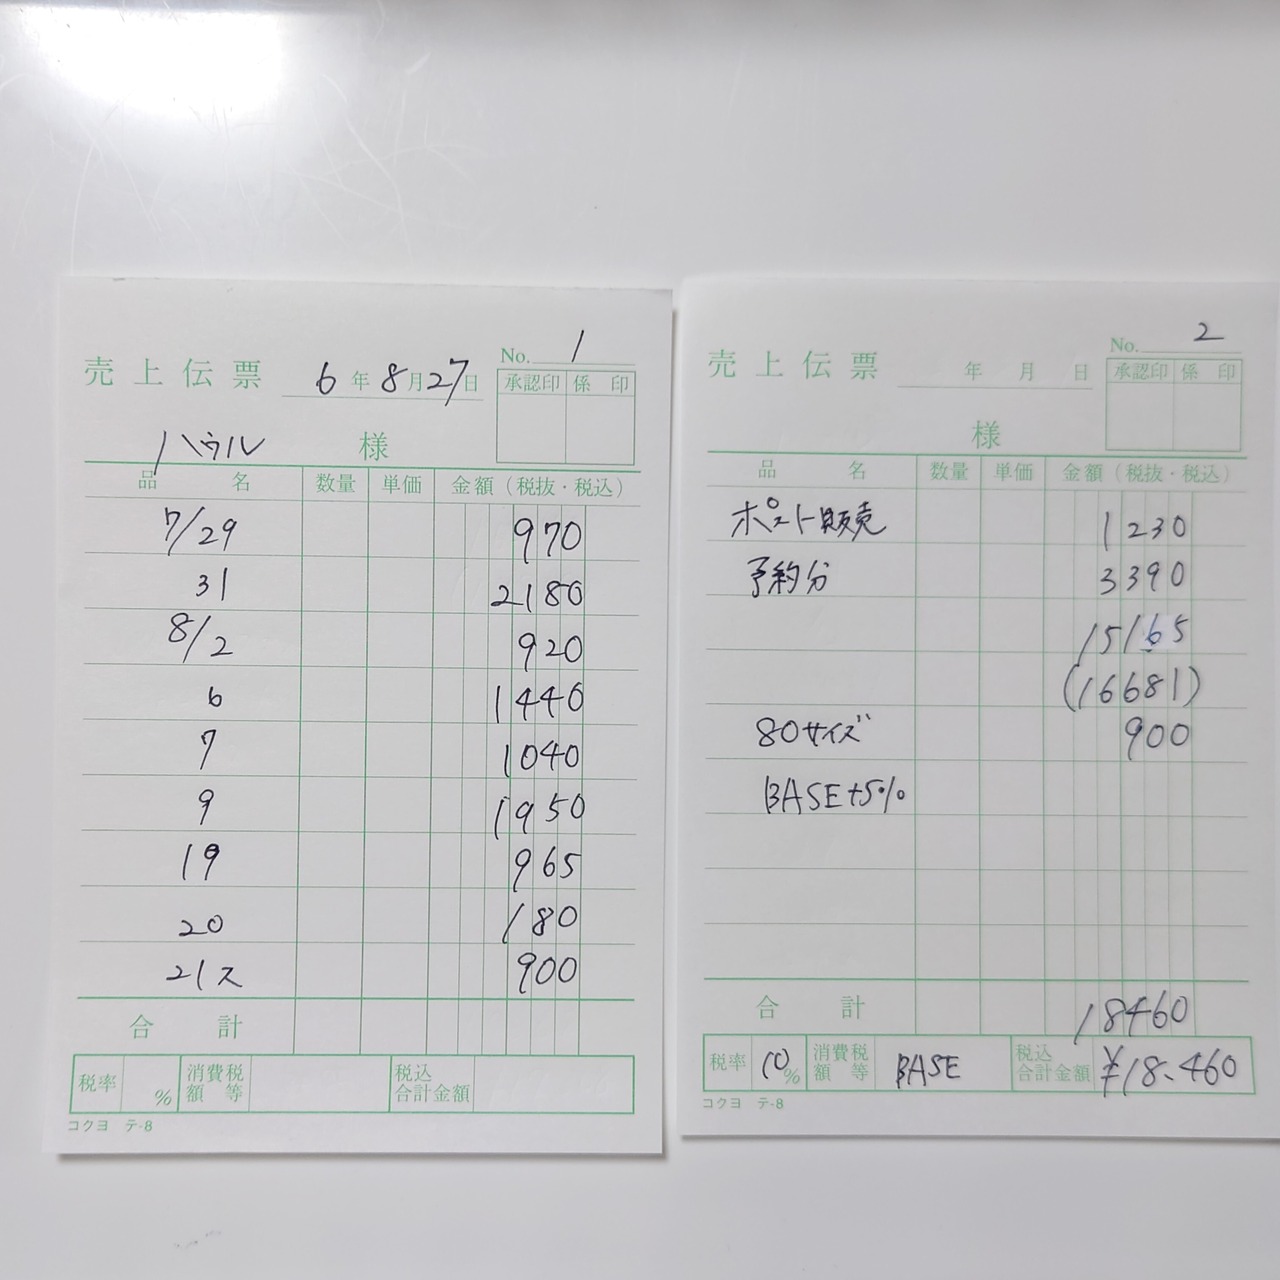 売上伝票 6年8月27日 No. 1
承認印 係印
ハウル 様
品名 数量 単価 金額（税抜・税込）
7/29 970
31 2180
8/2 920
6 1440
7 1040
9 1950
19 965
20 180
21ス 900
合計
税率 % 消費税額等 税込合計金額
コクヨ テ-8
売上伝票 年 月 日 No. 2
承認印 係印
様
品名 数量 単価 金額（税抜・税込）
ポスト販売 1230
予約分 3390
15165
(16681)
80サイズ 900
BASE+5%
合計 18460
税率 10% 消費税額等 BASE 税込合計金額 ¥18.460
コクヨ テ-8